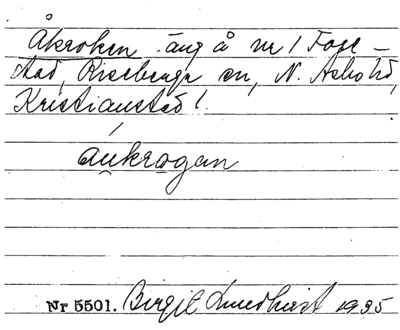 Åkroken äng å nr 1 Togel-
stad, Riseberga sn, N. Åsbo hd,
Kristianstad l.
áukrogan
Nr 5501. Birgit Lundkvist 1935